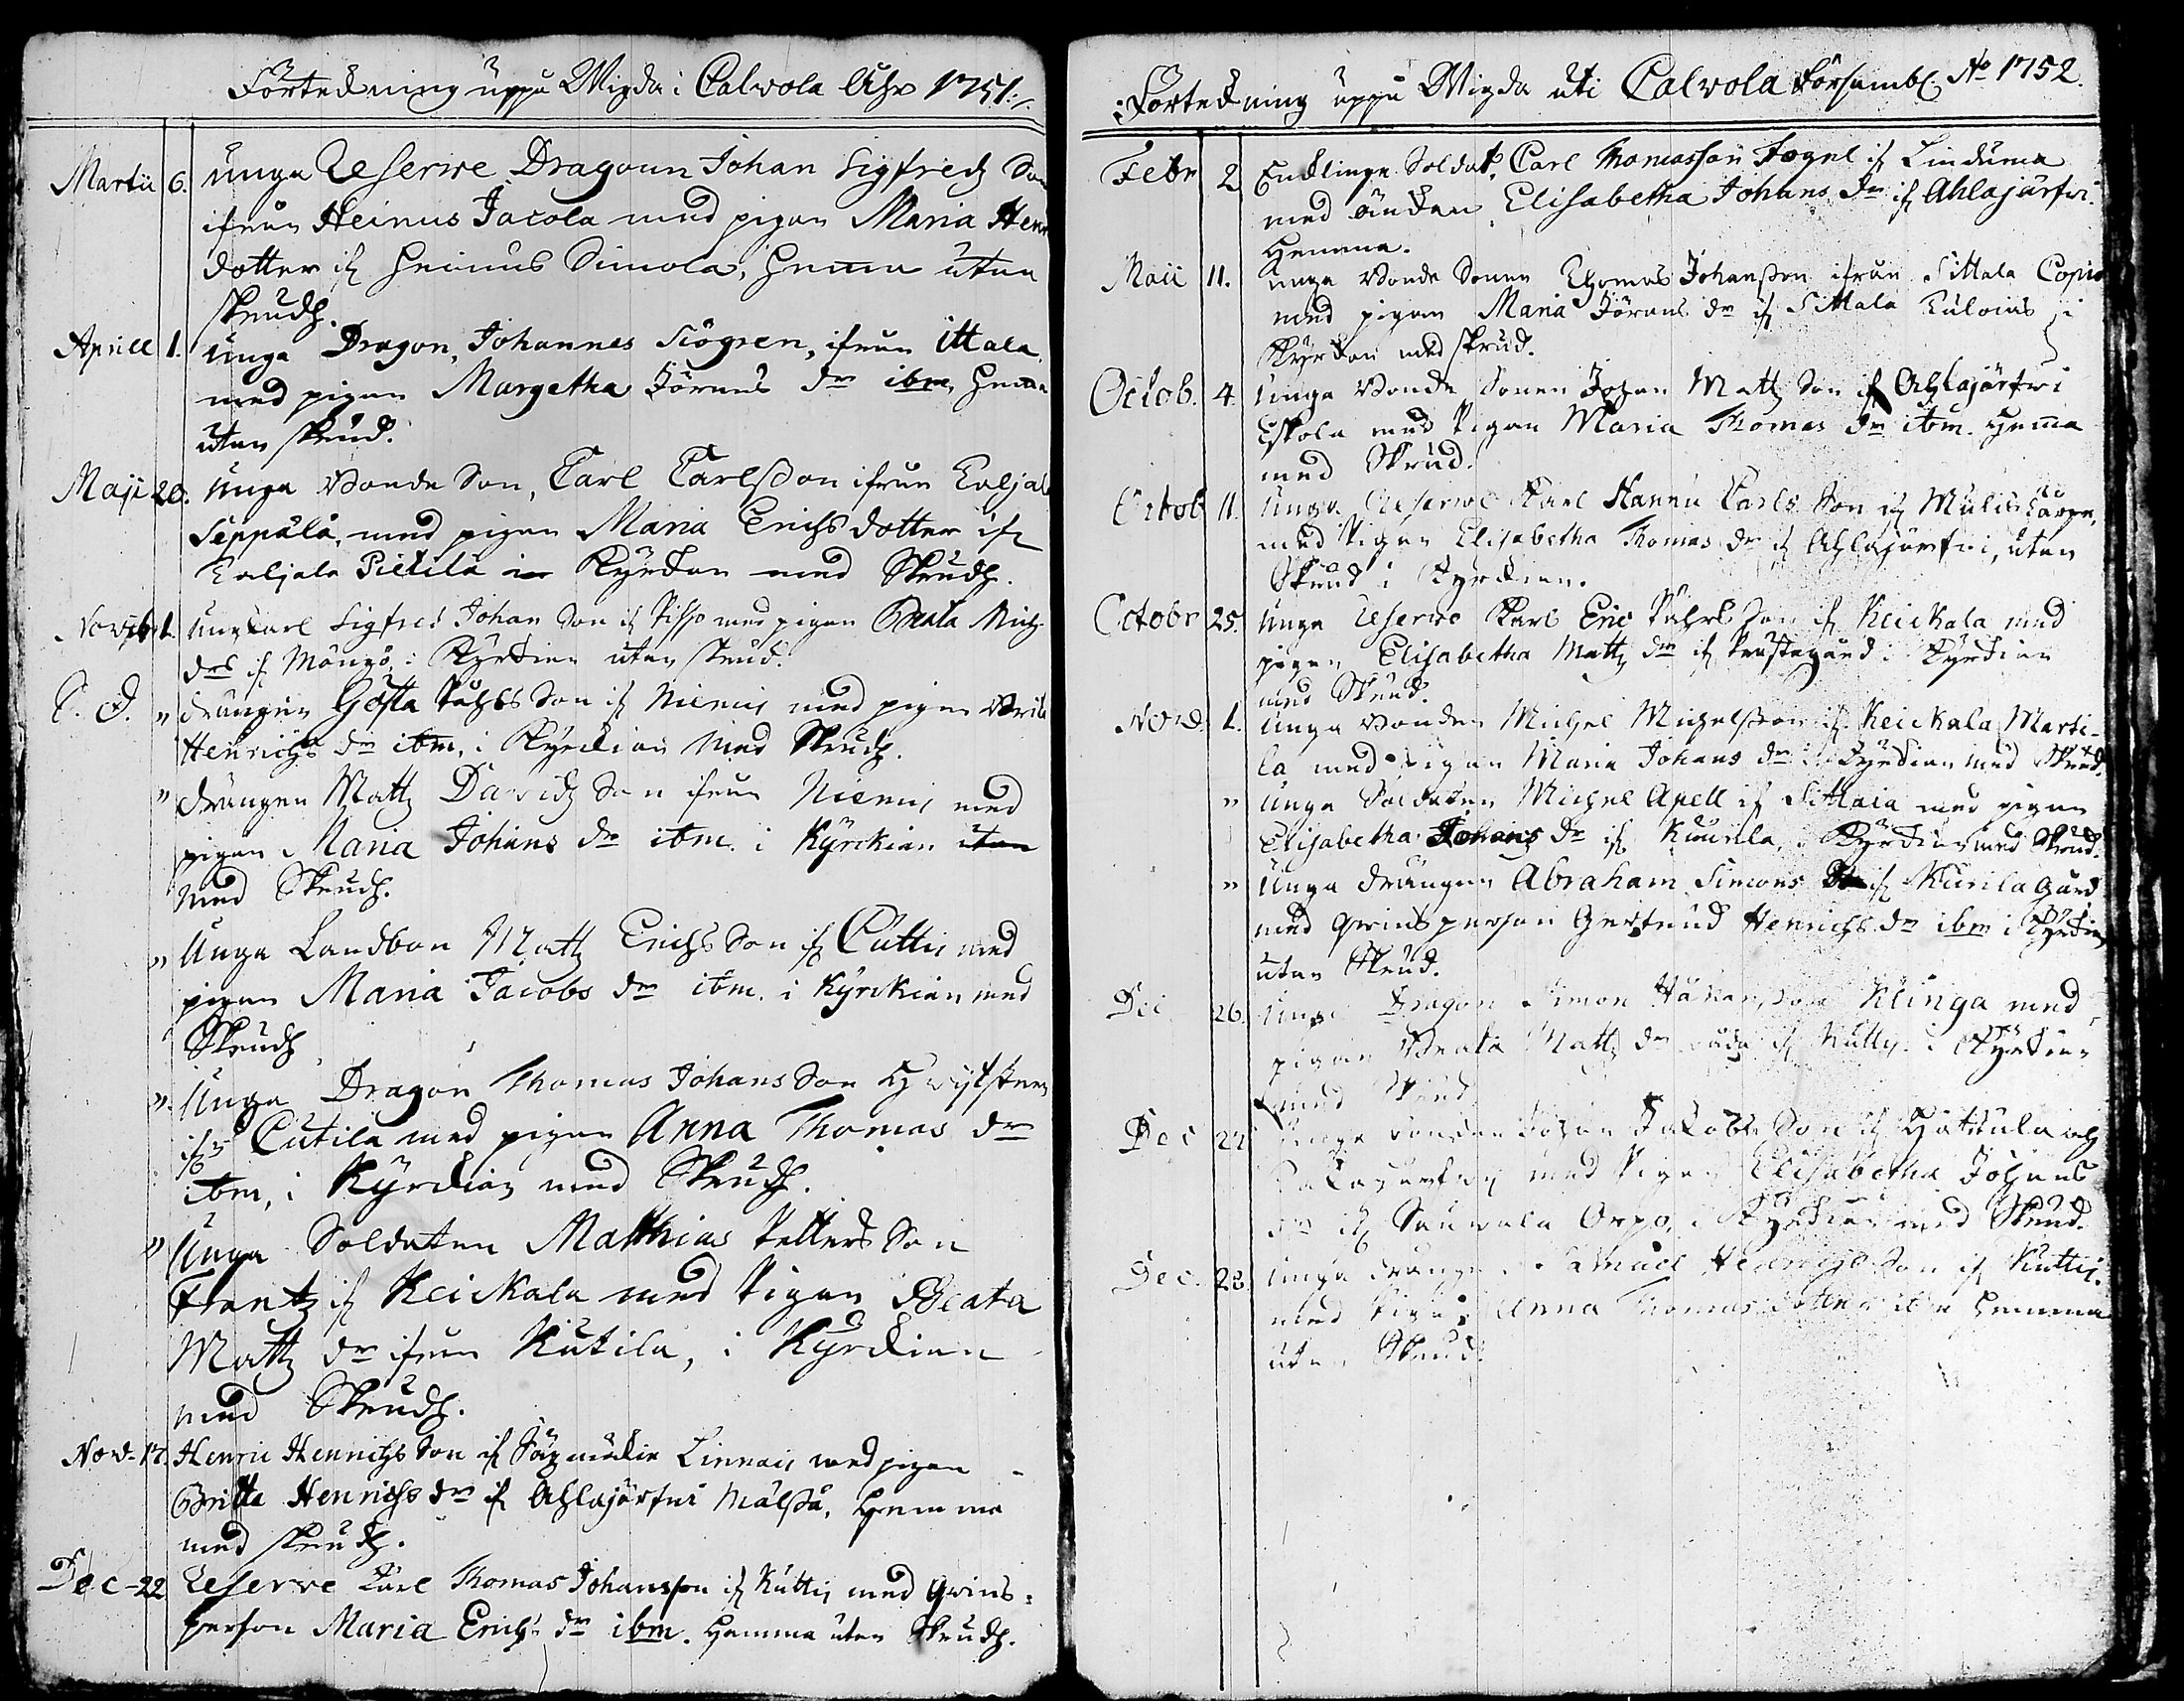 Förteckning uppå Wigda i Calvola Åhr 1751.
Martii 6. Unga Reserve Dragoun Johan Sigfredz Son
ifrån Heinus Jacola med pigan Maria Henr
dotter if. Heinus Simola, hemma utan
skrudh.
Aprill 1. Unga Dragon, Johannes Siögren, ifrån ittala
med pigan Margetha Jörans dr ibm, hemma
utan skrud.
Maji 20. Unga Bonde Son, Carl Carlsson ifrån
Seppälä, med pigan Maria Erichs dotter ifr
Pietilä i Kyrckan med Skrudh.
Novbr 1. Ung Karl Sigfred Johan Son if med pigan Beata Mich
drs if i Kyrckian utan skrud.
E. D. " drängen Gösta Påhls Son if Niemis med pigan Brita
Henrichs dr ibm, i Kyrckian med Skrudh.
" drängen Mattz Davidz Son ifrån Niemis med
pigan Maria Johans dr ibm. i Kyrckian utan
med Skrudh.
" Unga Landbon Mattz Erichs Son if Cuttis med
pigan Maria Jacobs dr ibm. i Kyrckian med
Skrudh
" Unga Dragon Thomas Johans Son
ifr Cutila med pigan Anna Thomas dr
ibm, i Kyrckian med Skrudh.
" Unga Soldaten Matthias Petters Son
Frantz if Keickala med Pigan Beata
Mattz dr ifrån Kutila, i Kyrckian
med Skrudh.
Nov. 17. Henric Henrichs Son if Sägmäkie Linnais med pigan
Britta Henrichs dr if Ahlajärfwi Mälsä, Hemma
med skrudh.
Dec 22 Reserve Karl Thomas Johansson if Kuttis med qwins-
person Maria Erichs dr ibm. Hemma utan Skrudh.
Förteckning uppå Wigda uti Calvola Försambl. Ao 1752.
Febr 2 Enklinge Soldat, Carl Thomasson Fogel if Linduma
med änckan Elisabetha Johans dr if Ahlajärfwi
Hemma.
Maii 11. Unga Bonde Sonen Thomas Johansson ifrån Sittala
med pigan Maria Jörans dr if Sittala i
Kyrckan med skrud.
Octob. 4. Unga Bonde Sonen Johan Mattz Son if Ahlajärfwi
Eskola med Pigan Maria Thomas dr ibm. Hemma
med Skrud.
Octob 11. Unga Reserve Karl Hannu Carls Son if
med Pigan Elisabetha Thomas dr if Ahlajärfwi, utan
Skrud i Kyrckian.
Octobr 25. Unga Reserve Karl Eric Påhls Son if Keickala med
pigan Elisabetha Mattz dr if Prästegård i Kyrckian
med Skrud.
Nov. 1. Unga Bonden Michel Michelsson if Keickala Marti-
la med pigan Maria Johans dr i Kyrckian med Skrud.
" Unga Soldaten Michel Apell if Sittala med pigan
Elisabetha Johans dr if Kuurila, i Kyrckian med Skrud.
" Unga drängen Abraham Simons if Kurila gård
med qwinsperson Gertrud Henrichs dr ibm i Kyrckian
utan Skrud.
Dec 26. Unga Dragon Simon Klinga med
pigan Beata Mattz dr if Kuttis i Kyrckian
med Skrud
Dec 27 Unga bonden Johan Jakobs Son if Hattula och
med Pigan Elisabetha Johans
dr if Sauvala Orpo, i Kyrckian med Skrud.
Dec. 28 Unga dräng Samuel Henrichs Son if Kuttis.
med Pigan Anna Thomas dotter ibm Hemma
utan Skrud.